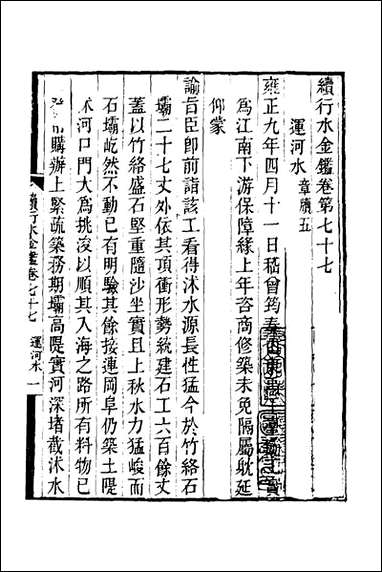 續行水金鑑卷第七十七
運河水 章牘五
雍正九年四月十一日嵇曾筠奏
為江南下游保障緣上年咨商修築未免隔屬躭延
仰蒙
諭旨臣即前詣該工看得沭水源長性猛今於竹絡石
壩二十七丈外依其頂衝形勢統建石工六百餘丈
蓋以竹絡盛石堅重隨沙坐實且上秋水力猛峻而
石壩屹然不動已有明驗其餘接連岡阜仍築土隄
沭河口門大為挑浚以順其入海之路所有料物已
購辦上緊疏築務期壩高隄實河深堵截沭水
續行水金鑑卷七十七 運河水 一